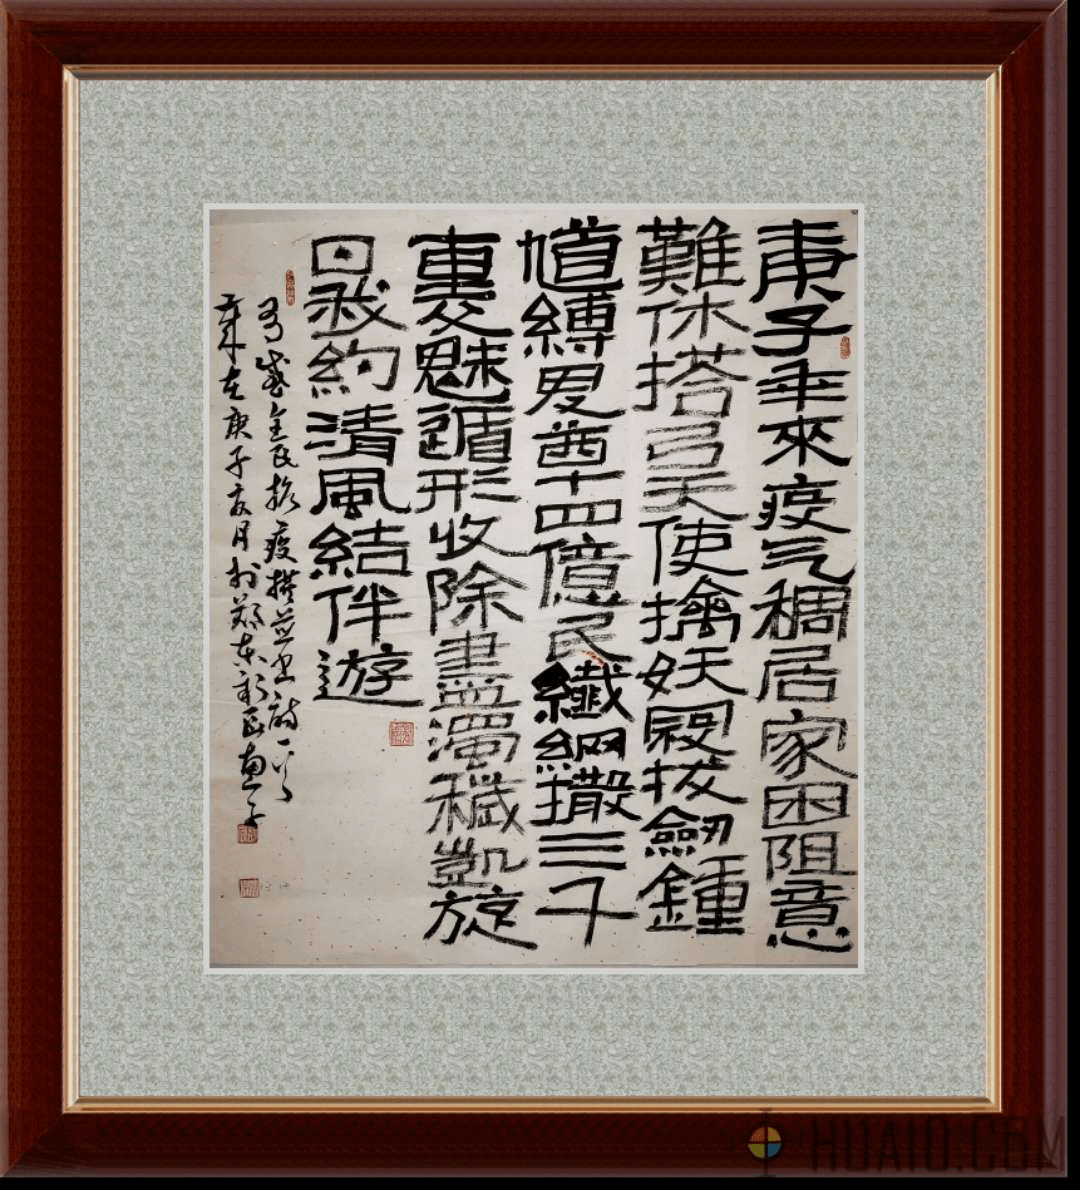 庚子年來疫气稠居家困阻意
難休搭弓天使擒妖殿拔劍鍾
馗縛鬼酋十四億民纖網撒三千
裏魅遁形收除盡濁穢凱旋
日我約清風結伴遊
有感全民抗疫撰并書詩一首
歲在庚子亥月於鄭東新區
HUAIO.COM